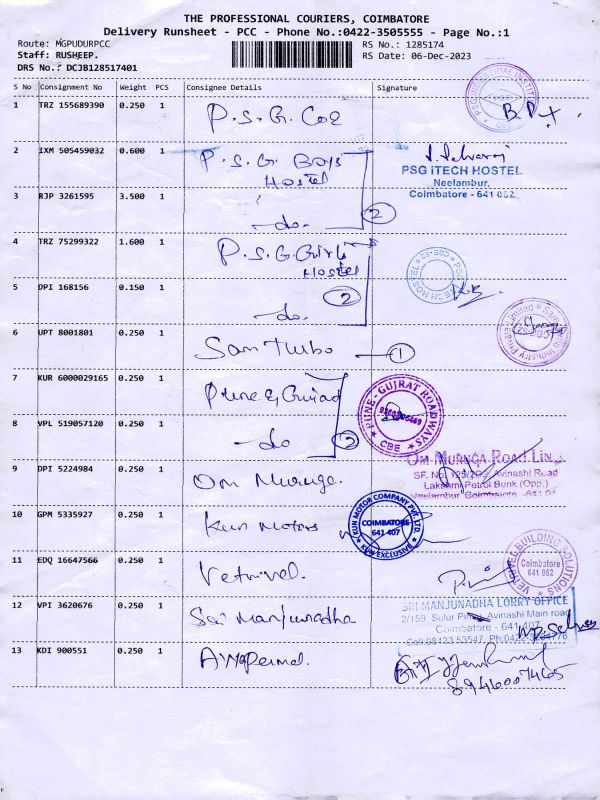 THE PROFESSIONAL COURIERS, COIMBATORE
Delivery Runsheet - PCC - Phone No.:0422-3505555 - Page No.:1
Route: MGPUDURPCC
RS No.: 1285174
Staff: RUSHEEP.
RS Date: 06-Dec-2023
DRS No.: DCJB128517401
S No Consignment No Weight PCS Consignee Details Signature
1 TRZ 155689390 0.250 1 P.S.G. COE
2 IXM 505459032 0.600 1 P.S.G. BOYS
HOSTEL
PSG iTECH HOSTEL
Neelambur,
Coimbatore - 641 062.
3 RJP 3261595 3.500 1 -do- 2
4 TRZ 75299322 1.600 1 P.S.G. Girls
HOSTEL
5 DPI 168156 0.150 1 -do- 2
6 UPT 8001801 0.250 1 Sam Turbo 1
7 KUR 6000029165 0.250 1 Pune & Gujrad
PUNE - GUJRAT ROADWAYS
CBE
8 VPL 519057120 0.250 1 -do- 2
9 DPI 5224984 0.250 1 Om Muruga.
OM MURUGA ROAD LINES
Avinashi Road
Lakshmi Petrol Bunk (Opp.)
Neelambur, Coimbatore
10 GPM 5335927 0.250 1 Kun Motors
KUN MOTOR COMPANY PVT. LTD.
COIMBATORE
641 407
KUN EXCLUSIVE
11 EDQ 16647566 0.250 1 Vetrivel.
VETRIVEL BUILDING SOLUTIONS
Coimbatore
641 062
12 VPI 3620676 0.250 1 Sai Manjunadha
SRI MANJUNADHA LORRY OFFICE
2/159, Sulur Pirivu, Avinashi Main road
Coimbatore - 641 407
13 KDI 900551 0.250 1
8946007465